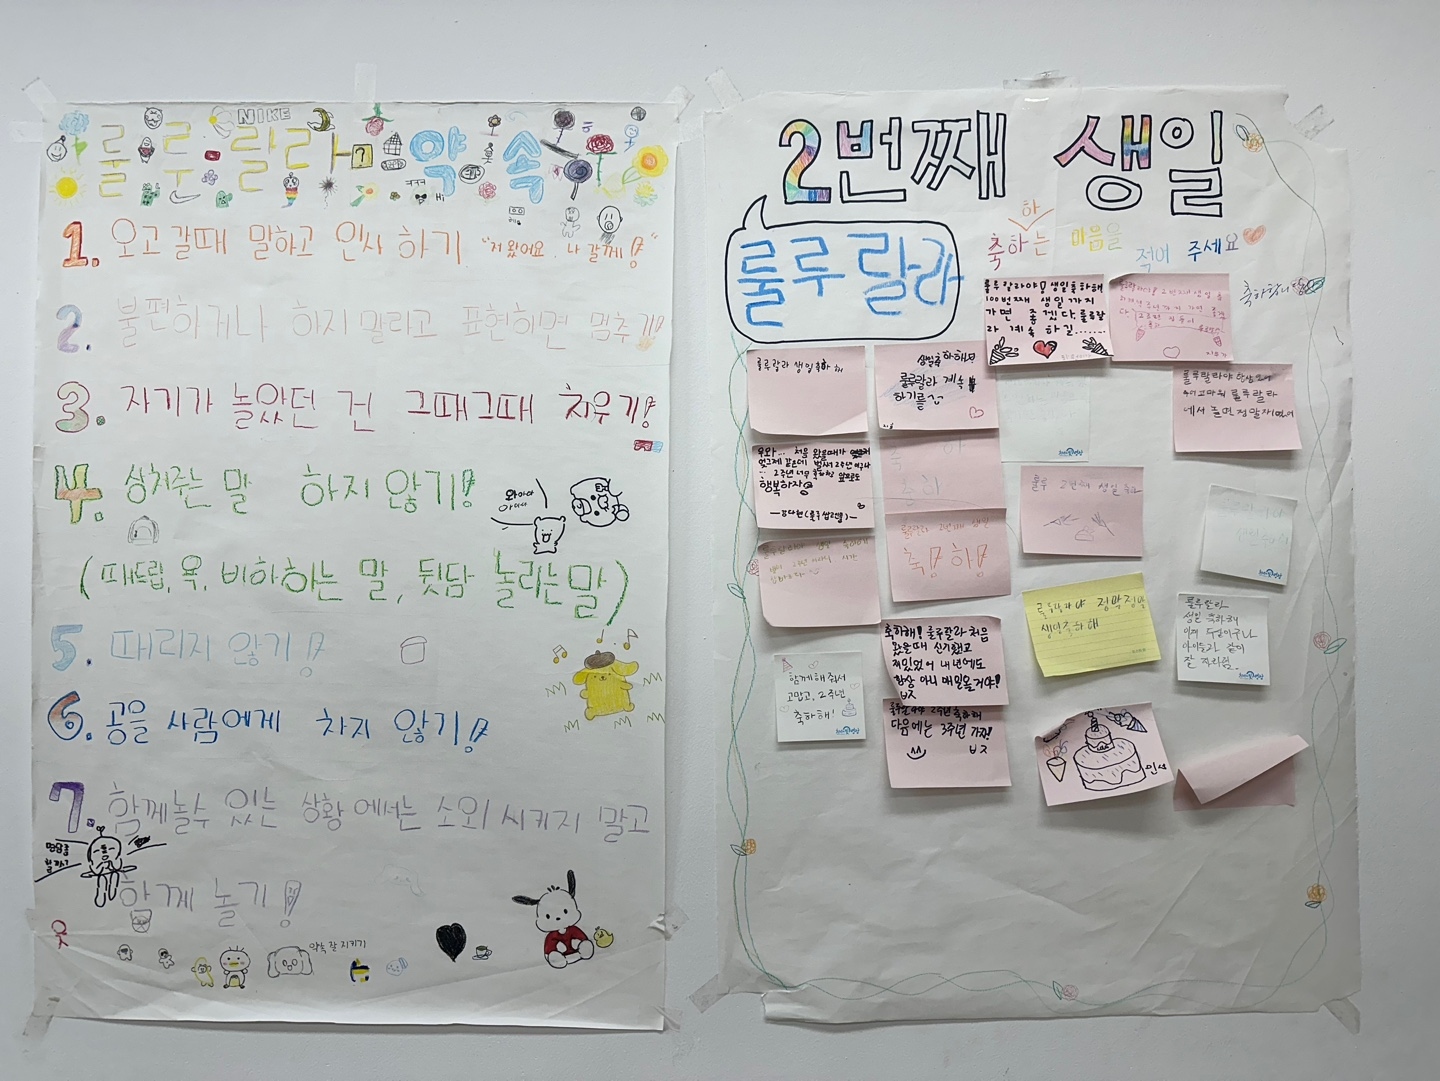 NIKE
룰루랄라 약속
ㅋㅋㅋ
Hi
1. 오고갈때 말하고 인사 하기 "저 왔어요. 나 갈게!"
2. 불편하거나 하지말라고 표현하면 멈추기!
3. 자기가 놀았던 건 그때그때 치우기!
4. 상처주는 말 하지 않기!
와아아
(패드립, 욕, 비하하는 말, 뒷담 놀리는말)
5. 때리지 않기!
6. 공을 사람에게 차지 않기!
7. 함께놀수 있는 상황에서는 소외 시키지 말고
함께 놀기!
약속 잘 지키기
2번째 생일
룰루랄라
하
축하는 마음을 적어 주세요
축하합니당
룰루랄라야! 생일축하해
100번째 생일까지
가면 좋겠다. 룰루랄
라 계속 하길.......
룰루랄라 생일축하해
생일축하해!
룰루랄라 계속
하기를
룰루랄라야
고마워 룰루랄라
에서 놀면 정말재밌어
우와... 처음 왔을때가
엊그제 같은데 벌써 2주년 이구나
... 2주년 너무 축하행 앞으로도
행복하장
축하
축하
룰루 2번째 생일 축하
룰루랄라 2번째 생일
축하함!
룰루랄라야 정말정말
생일축하해
룰루랄라
생일 축하해
이제 두살이구나
아이들과 같이
잘 자라렴.
축하해! 룰루랄라 처음
왔을때 신기했고
재밌었어 내년에도
항상 아니 매일올거야!
함께해 줘서
고맙고, 2주년
축하해!
2주년축하해
다음에는 3주년 가자!
민서